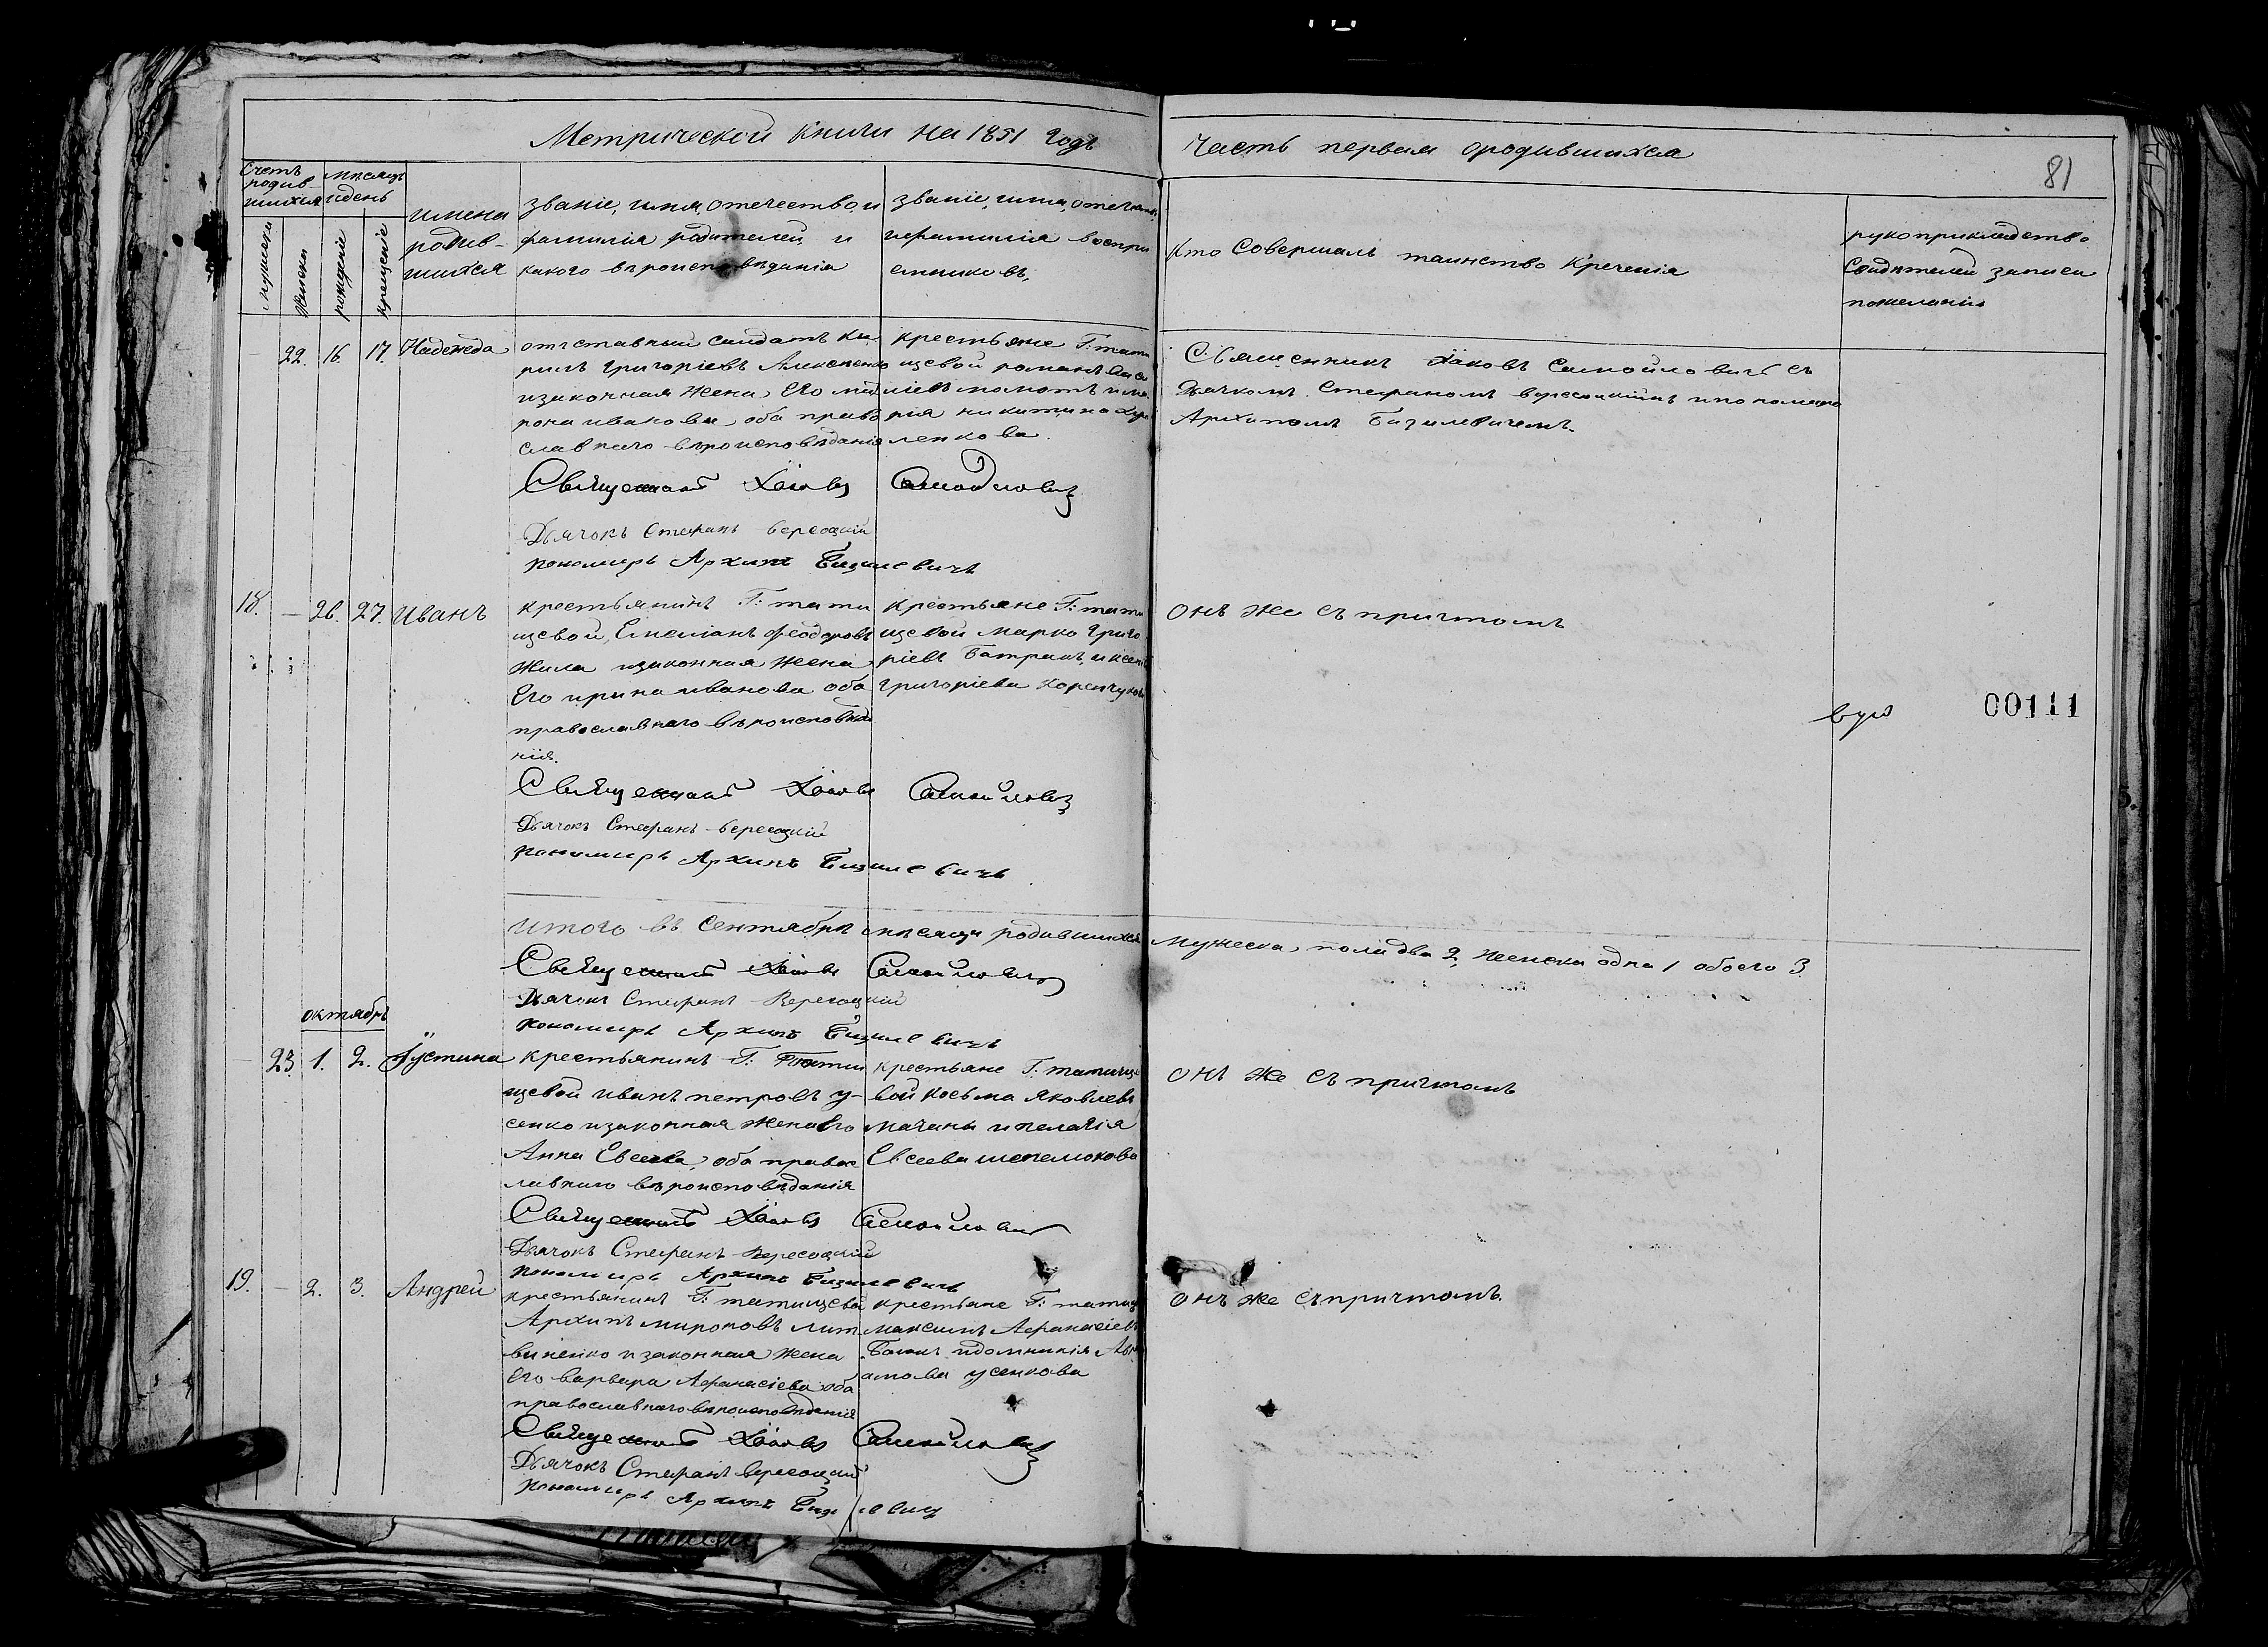 Метрической книги на 1851 годъ
Часть первая о родившихся
81
Счетъ родив-шихся
мѣсяцъ и день
мужеска
женска
рожденіе
крещеніе
имена
родив-
шихся
званіе, имя, отечество, и
фамилія родителей и
какого вѣроисповѣданія
званіе, имя, отечество,
и фамилія воспри
емниковъ.
Кто совершалъ таинство Крещенія
рукоприкладство
свидѣтелей записи
по желанію
22. 16. 17. Надежда
отставный салдатъ Ки
рилъ Григоріевъ Алексѣенко
и законная жена Его мат
рона иванова оба право
славнаго вѣроисповѣданія
крестьяне Г: тати
щевой романъ васи
ліевъ мамотъ и ма
рія никитина
ленкова.
Священникъ Іаковъ Самойловичъ съ
Дьячкомъ Стефаномъ вересоцкимъ и пономаремъ
Архипомъ Бизилевичемъ.
Священникъ Іаковъ Самойловичъ
Дьячокъ Стефанъ вересоцкій
пономарь Архипъ Бизилевичъ
18. — 26. 27. Иванъ
крестьянинъ Г: тати
щевой, Емеліанъ Феодоровъ
Жила и законная жена
Его ирина иванова оба
православнаго вѣроисповѣда
нія.
крестьяне Г: тати
щевой Марко Григо
ріевъ Батракъ, и ксенія
григоріева
Онъ же съ причтомъ
00111
Священникъ Іаковъ Самойловичъ
Дьячокъ Стефанъ вересоцкій
пономарь Архипъ Бизилевичъ
Итого въ Сентябрѣ мѣсяцѣ родившихся мужеска пола два 2, женска одна 1 обоего 3.
Священникъ Іаковъ Самойловичъ
Дьячокъ Стефанъ Вересоцкій
пономарь Архипъ Бизилевичъ
октябрь
23. 1. 2. Іустина
крестьянинъ Г: Тати
щевой иванъ петровъ у-
сенко и законная жена Его
Анна Евсеева, оба правос
лавнаго вѣроисповѣданія
крестьяне Г: татище
вой косьма Яковлевъ
мачаны и пелагія
Евсеева шепелюкова
онъ же съ причтомъ
Священникъ Іаковъ Самойловичъ
Дьячокъ Стефанъ Вересоцкій
пономарь Архипъ Бизилевичъ
19. — 2. 3. Андрей
крестьянинъ Г: татищевой
Архипъ мироновъ лит
виненко и законная жена
Его варвара Афанасіева оба
православнаго вѣроисповѣданія
крестьяне Г: татищ
максимъ Афанасіевъ
и домникія
усенкова
онъ же съ причтомъ.
Священникъ Іаковъ Самойловичъ
Дьячокъ Стефанъ вересоцкій
пономарь Архипъ Бизилевичъ